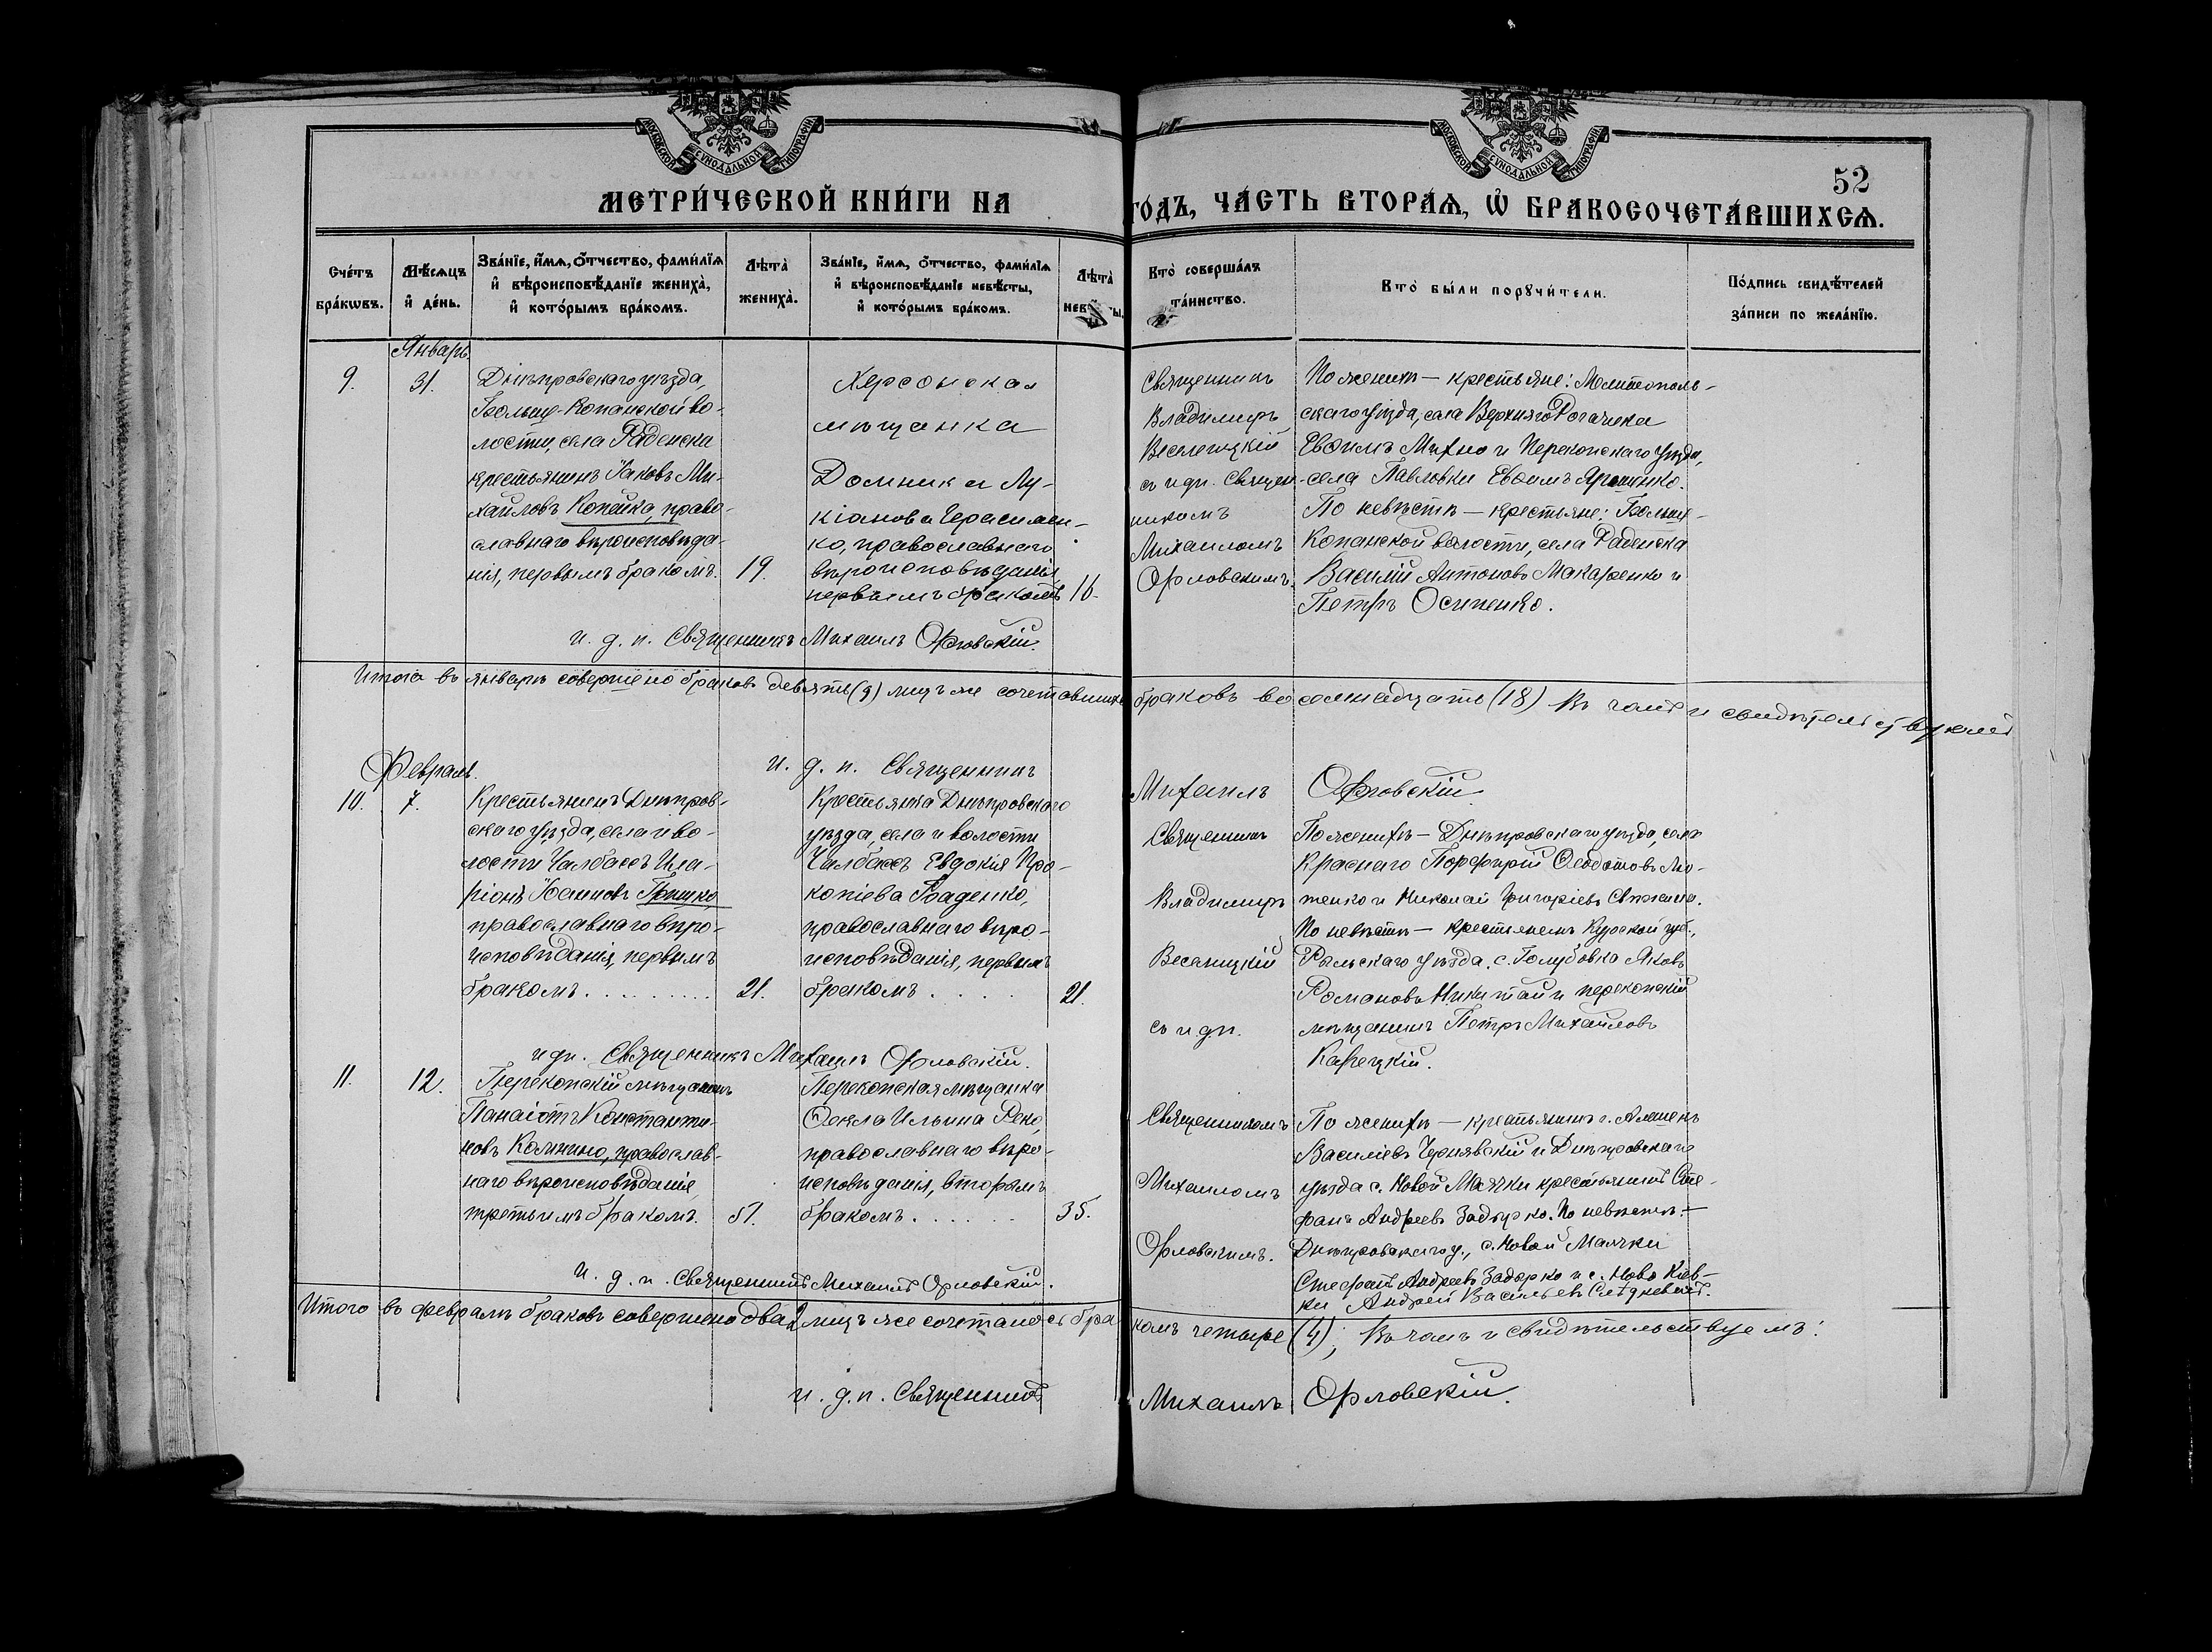 МОСКОВСКОЙ СѴНОДАЛЬНОЙ ТИПОГРАФІИ
МОСКОВСКОЙ СѴНОДАЛЬНОЙ ТИПОГРАФІИ
52
МЕТРИ́ЧЕСКОЙ КНИ́ГИ НА
ГОДЪ, ЧА́СТЬ ВТОРА́Ѧ, Ѡ҆ БРАКОСОЧЕТА́ВШИХСѦ.
Сче́тъ
бра́кѡвъ.
Мѣ́сѧцъ
и҆ де́нь.
Зва́нїе, и҆́мѧ, ѻ҆́тчество, фами́лїѧ
и҆ вѣроисповѣ́данїе жениха̀,
и҆ кото́рымъ бра́комъ.
Лѣта̀
жениха̀.
Зва́нїе, и҆́мѧ, ѻ҆́тчество, фами́лїѧ
и҆ вѣроисповѣ́данїе невѣ́сты,
и҆ кото́рымъ бра́комъ.
Лѣта̀
Кто̀ соверша́лъ
та́инство.
Кто̀ бы́ли порꙋчи́тели.
По́дпись свидѣ́телей
за́писи по жела́нїю.
Январь.
9.
31.
Днѣпровскаго уѣзда,
Больше-Копанской во-
лости, села Раденска
крестьянинъ Іаковъ Ми-
хайловъ Копейка, право-
славнаго вѣроисповѣда-
нія, первымъ бракомъ.
19.
Херсонская
мѣщанка
Домника Лу-
кіанова Герасимен-
ко, православнаго
вѣроисповѣданія,
первымъ бракомъ
16.
Священникъ
Владимиръ
Веселицкій
съ и дп. Священ-
никомъ
Михаиломъ
Орловскимъ.
По женихѣ — крестьяне: Мелитополь-
скаго уѣзда, села Верхняго Рогачика
Евѳимъ Михно и Перекопскаго уѣзда,
села Павловки Евѳимъ Ярошенко.
По невѣстѣ — крестьяне: Больше-
Копанской волости, села Раденска
Василій Антоновъ Макаренко и
Петръ Осипенко.
и. д. п. Священникъ Михаилъ Орловскій.
Итого въ январѣ совершено браковъ девять (9) лицъ же сочетавшихся бракомъ восемнадцать (18) Въ чемъ и свидѣтельствуемъ
и. д. п. Священникъ Михаилъ Орловскій.
Февраль.
10.
7.
Крестьянинъ Днѣпров-
скаго уѣзда, села и во-
лости Чалбассъ Ила-
ріонъ Іоанновъ
православнаго вѣро-
исповѣданія, первымъ
бракомъ.
21.
Крестьянка Днѣпровскаго
уѣзда, села и волости
Чалбассъ Евдокія Про-
копіева Баденко,
православнаго вѣро-
исповѣданія, первымъ
бракомъ
21.
Священникъ
Владимиръ
Веселицкій
съ и дп.
По женихѣ — Днѣпровскаго уѣзда, села
Краснаго Порфирій
и Николай Григоріевъ
По невѣстѣ — крестьянинъ Курской губ.,
Рыльскаго уѣзда, с. Голубовка Яковъ
Романовъ Никитай и перекопскій
мѣщанинъ Петръ Михайловъ
Карецкій.
и дп. Священникъ Михаилъ Орловскій.
11.
12.
Перекопскій мѣщанинъ
Панаіотъ Константи-
новъ Калинино, православ-
наго вѣроисповѣданія,
третьимъ бракомъ.
51.
Перекопская мѣщанка
Ѳекла Ильина Рено,
православнаго вѣро-
исповѣданія, вторымъ
бракомъ
35.
Священникомъ
Михаиломъ
Орловскимъ.
По женихѣ — крестьянинъ г. Алешекъ
Василіевъ Чернявскій и Днѣпровскаго
уѣзда с. Новой Маячки крестьянинъ Сте-
фанъ Андреевъ Задырко. По невѣстѣ: —
Днѣпровскаго у., с. Новой Маячки
Стефанъ Андреевъ Задырко и с. Ново Кіев-
ки Андрей Васильевъ
И. д. п. Священникъ Михаилъ Орловскій.
Итого въ февралѣ браковъ совершено два 2 лицъ же сочеталось бракомъ четыре (4); Въ чемъ и свидѣтельствуемъ:
и. д. п. Священникъ Михаилъ Орловскій.